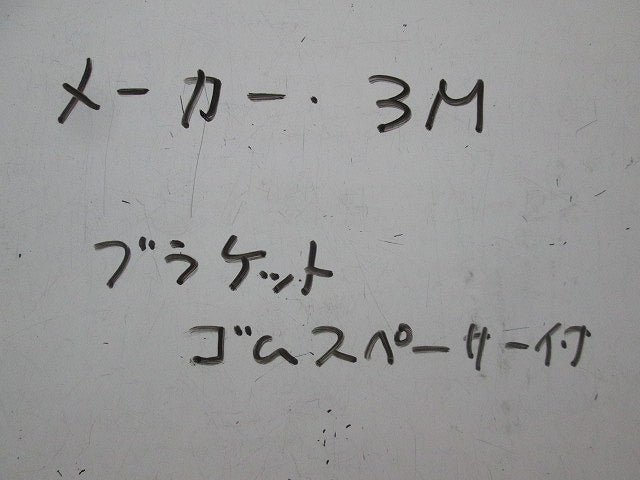 メーカー. 3M
ブラケット
ゴムスペーサー付